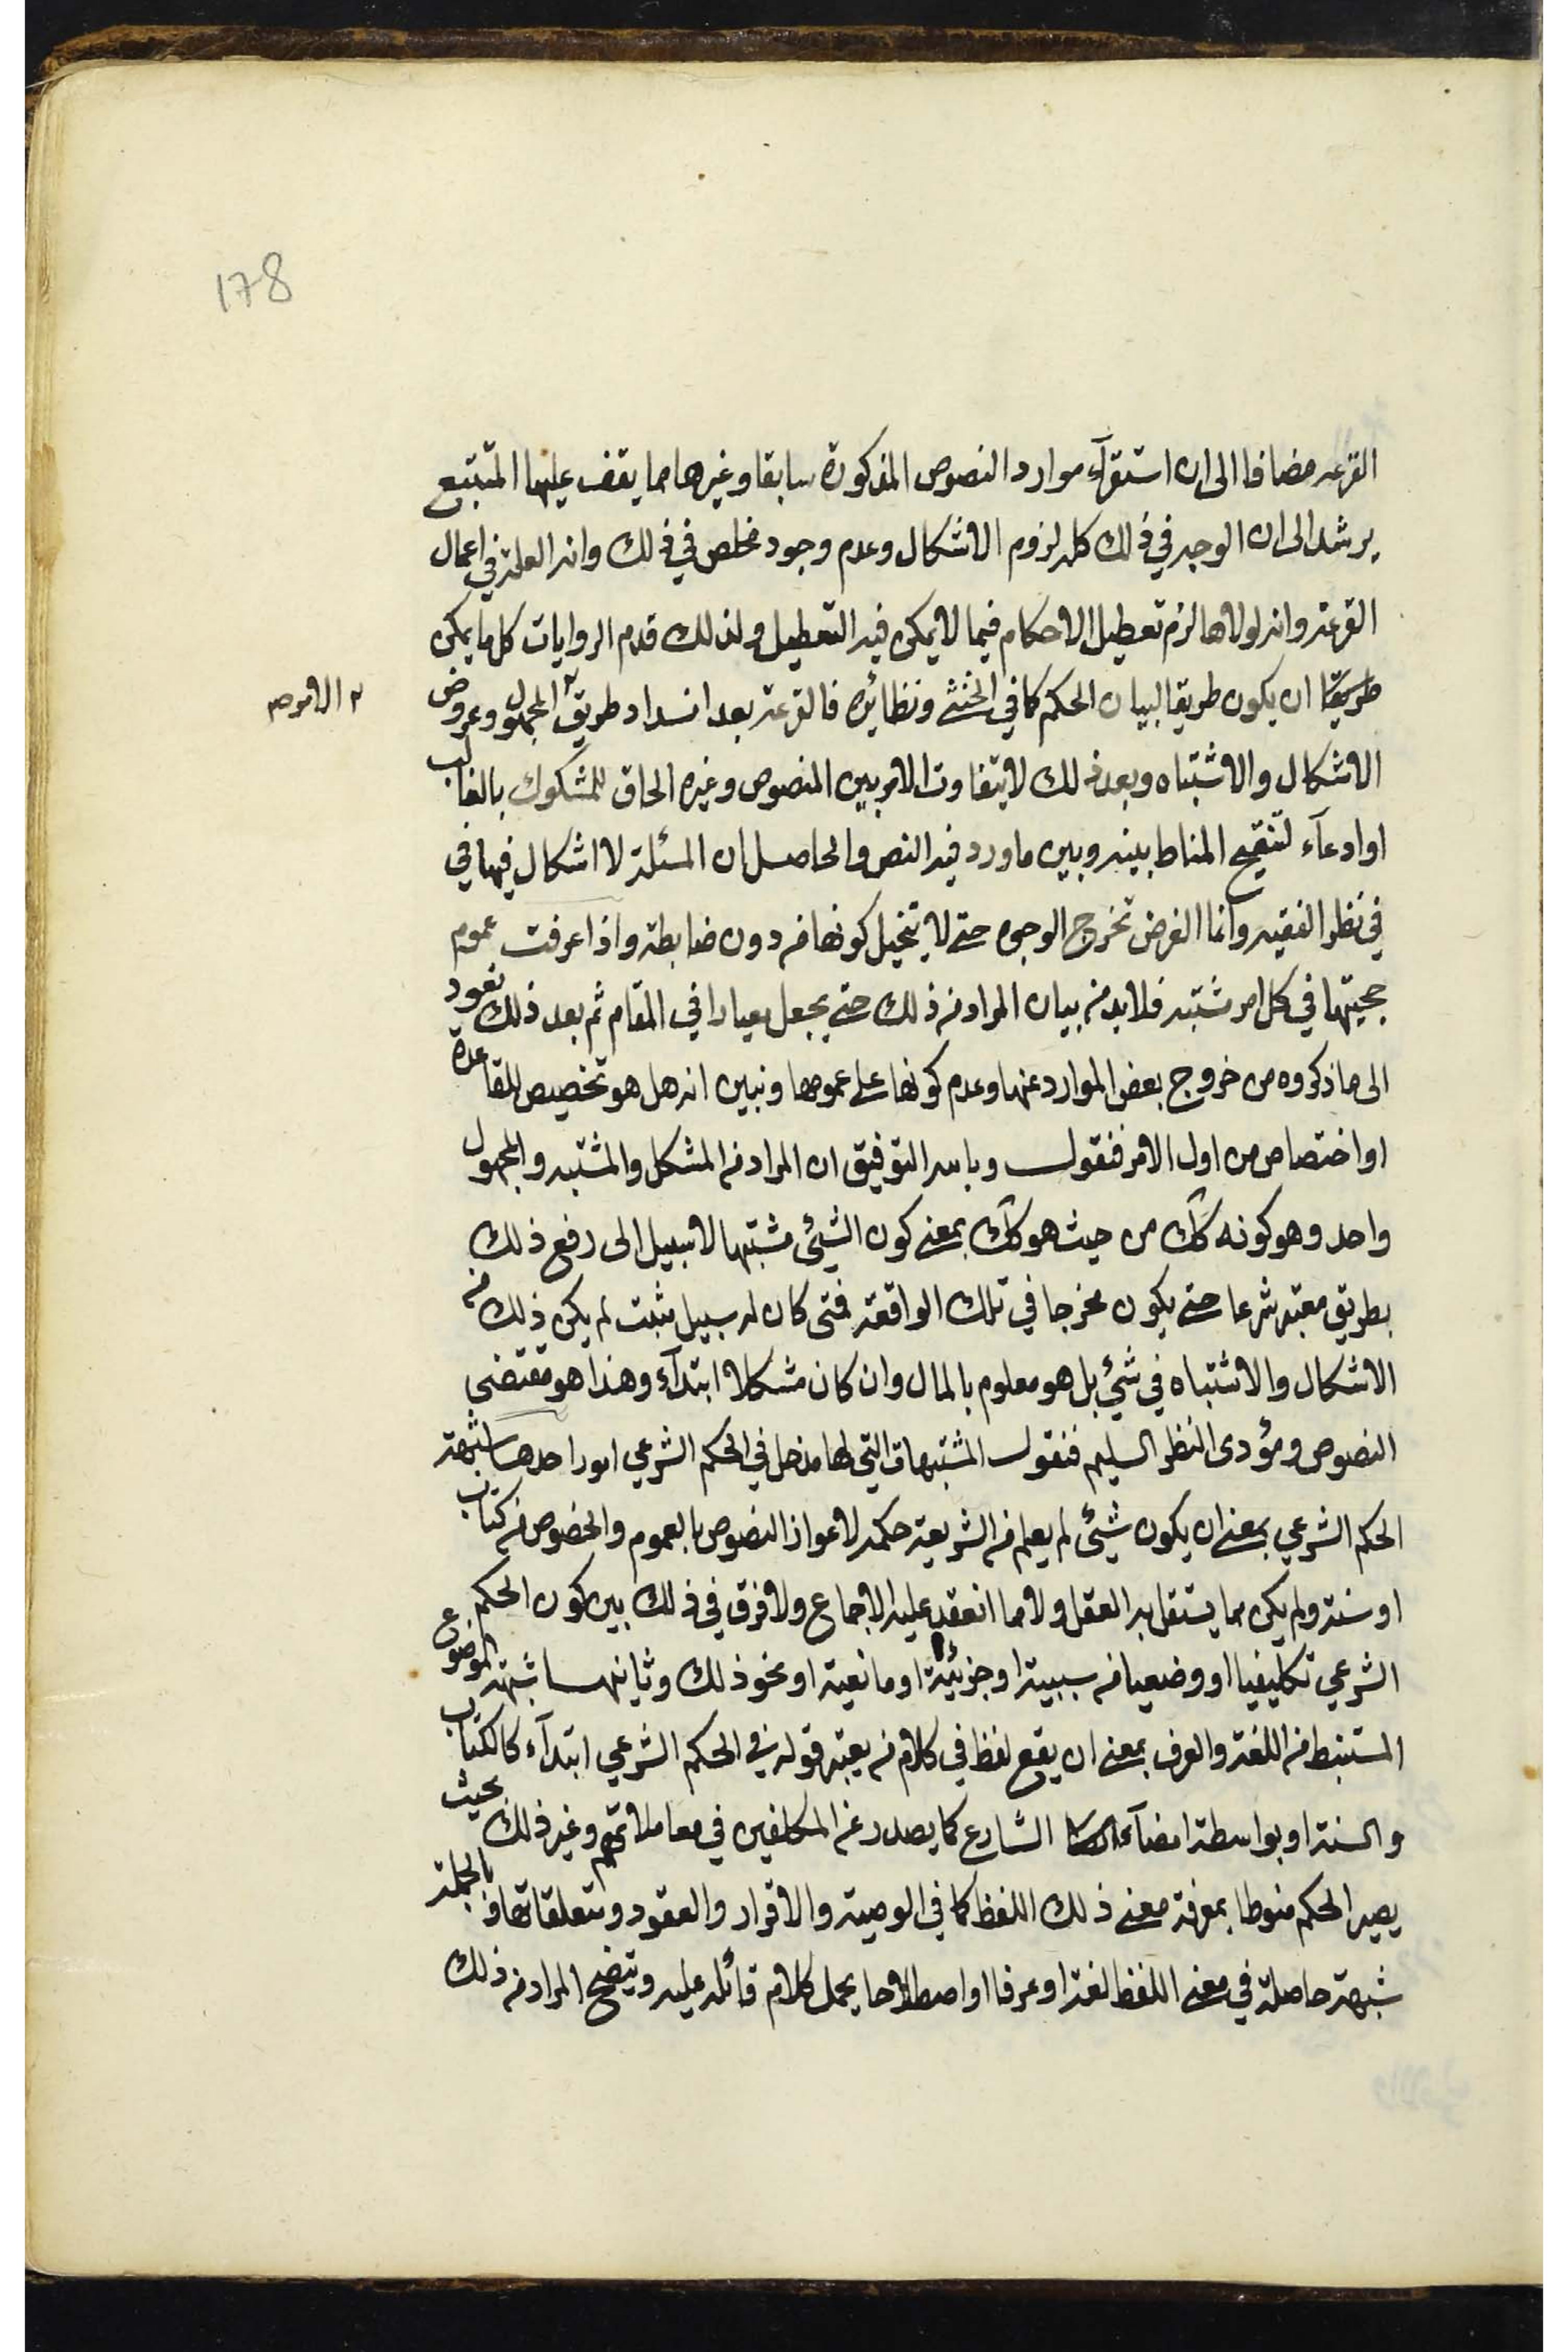 178
القرعه مضافا الى ان استقرآء موارد النصوص المذكورة سابقا وغيرها مما يقف عليها المتتبع
يرشد الى ان الوجه في ذلك كله لزوم الاشكال وعدم وجود مخلص في ذلك وانه العلة في اعمال
القرعة وانه لولاها لزم تعطيل الاحكام فيما لا يمكن فيه التعطيل ولذلك قدم الروايات كل ما يمكن
طريقا ان يكون طريقا لبيان الحكم كما في الخنثى ونظائره فالقرعة بعد انسداد طريق المجهول وعروض
الامر صح
الاشكال والاشتباه وبعد ذلك لا يتفاوت الامر بين المنصوص وغيره الحاق للمشكوك بالغالب
او ادعآء لتنقيح المناط بينه وبين ما ورد فيه النص والحاصل ان المسئلة لا اشكال فيها في
في نظر الفقيه وانما الغرض تخرج الوجوه حتى لا يتخيل كونها من دون ضابطة واذا عرفت عموم
حجيتها في كل امر مشتبه فلابد من بيان المراد من ذلك حتى يجعل معيارا في المقام ثم بعد ذلك نعود
الى ما ذكروه من خروج بعض الموارد عنها وعدم كونها على عمومها ونبين انه هل هو تخصيص للقاعدة
او اختصاص من اول الامر فنقول وبالله التوفيق ان المراد من المشكل والمشتبه والمجهول
واحد وهو كونه كك من حيث هو كك بمعنى كون الشيئ مشتبها لا سبيل الى رفع ذلك
بطريق معتبر شرعا حتى يكون مخرجا في تلك الواقعة فمتى كان له سبيل مثبت لم يكن ذلك من
الاشكال والاشتباه في شيئ بل هو معلوم بالمال وان كان مشكلا ابتدآء وهذا هو مقتضى
النصوص ومؤدى النظر السليم فنقول المشتبهات التي لها مدخل في الحكم الشرعي امور احدها شبهة
الحكم الشرعي بمعنى ان يكون شيئ لم يعلم من الشريعة حكمه لاعواز النصوص بالعموم والخصوص من كتاب
او سنة ولم يكن مما يستقل به العقل ولا مما انعقد عليه الاجماع ولا فرق في ذلك بين كون الحكم
الشرعي تكليفيا او وضعيا من سببية او جزئية او مانعية او نحو ذلك وثانيها شبهة الموضوع
المستنبط من اللغة والعرف بمعنى ان يقع لفظ في كلام من يعتبر قوله في الحكم الشرعي ابتدآء كالكتاب
والسنة او بواسطة امضآء الشارع كما يصدر عن المكلفين في معاملاتهم وغير ذلك بحيث
يصير الحكم منوطا بمعرفة معنى ذلك اللفظ كما في الوصية والاقرار والعقود ومتعلقاتها وبالجملة
شبهة حاصلة في معنى اللفظ لغة او عرفا او اصطلاحا يحمل كلام قائله عليه ويتضح المراد من ذلك